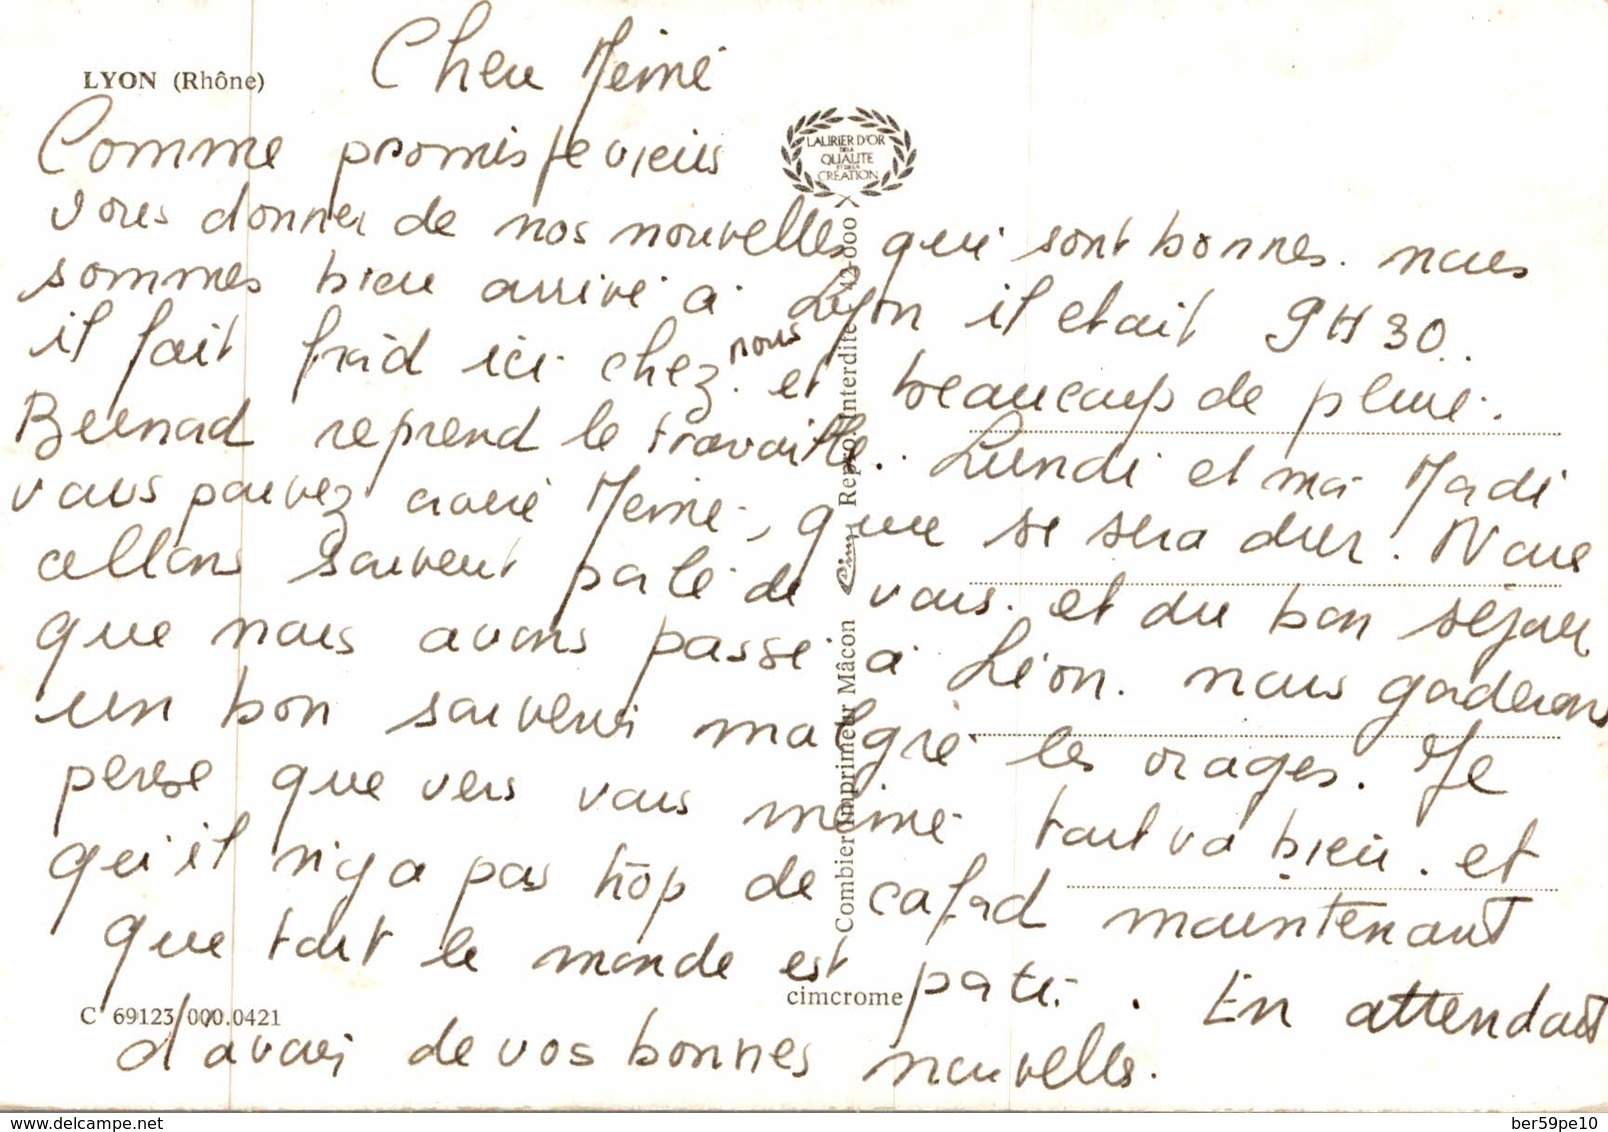 LYON (Rhône)
Cher Mémé
Comme promis je viens
vous donner de nos nouvelles qui sont bonnes. nous
sommes bien arrivé à Lyon il etait 9H30..
il fait froid ici chez nous et beaucoup de pluie.
Bernad reprend le travaille. Lundi et moi Mardi
vous pouvez croire Mémé, que se sera dur. Nous
allons souvent parlé de vous. et du bon séjour
que nous avons passé à Léon. nous garderons
un bon souvenir malgré les orages. Je
pense que vers vous mémé tout va bien. et
qu'il n'y a pas trop de cafard maintenant
que tout le monde est parti. En attendant
d'avoir de vos bonnes nouvelles.
LAURIER D'OR
DE LA
QUALITE
ET DE LA
CRÉATION
Combier Imprimeur Mâcon Cim Repro. Interdite 42-000
cimcrome
C 69123 000.0421
delcampe.net
ber59pe10